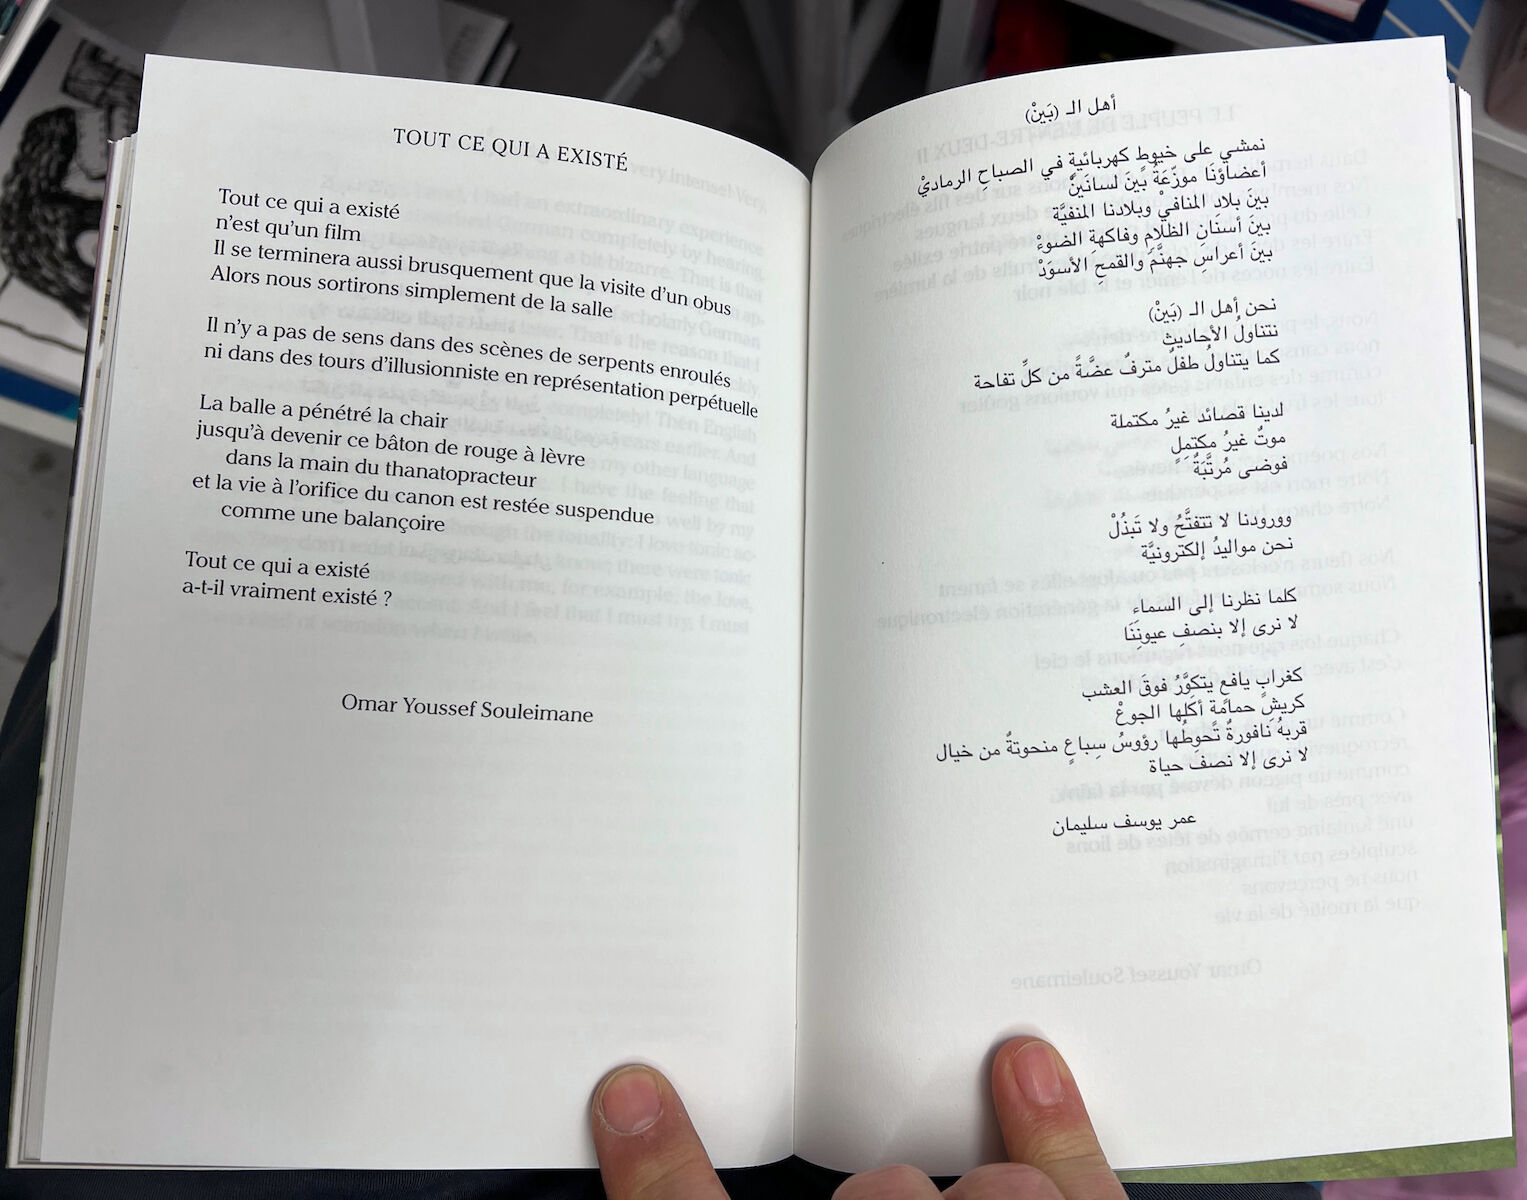 TOUT CE QUI A EXISTÉ
Tout ce qui a existé
n'est qu'un film
Il se terminera aussi brusquement que la visite d'un obus
Alors nous sortirons simplement de la salle
Il n'y a pas de sens dans des scènes de serpents enroulés
ni dans des tours d'illusionniste en représentation perpétuelle
La balle a pénétré la chair
jusqu'à devenir ce bâton de rouge à lèvre
dans la main du thanatopracteur
et la vie à l'orifice du canon est restée suspendue
comme une balançoire
Tout ce qui a existé
a-t-il vraiment existé ?
Omar Youssef Souleimane
أهل الـ (بَينْ)
نمشي على خيوطٍ كهربائيةٍ في الصباحِ الرماديْ
أعضاؤنَا موزّعَةٌ بينَ لسانَينْ
بينَ بلاد المنافيْ وبلادنا المنفيَّة
بينَ أسنَانِ الظلامِ وفاكهة الضوءْ
بينَ أعراسِ جهنَّمَ والقمحِ الأسودْ
نحن أهل الـ (بَينْ)
نتناول الأحاديث
كما يتناولُ طفلٌ مترفٌ عضَّةً من كلِّ تفاحة
لدينا قصائد غيرُ مكتملة
موتٌ غيرُ مكتملٍ
فوضى مُرتَّبَةٌ
وورودنا لا تتفتَّحُ ولا تَبذُلْ
نحن مواليدُ إلكترونيَّة
كلما نظرنا إلى السماء
لا نرى إلا بنصفِ عيوننَا
كغرابٍ يافعٍ يتكوَّرُ فوقَ العشب
كريشِ حمامَةٍ أكلَها الجوعْ
قربهُ نافورةٌ تحوطُها رؤوسُ سِباعٍ منحوتةٌ من خيال
لا نرى إلا نصفَ حياة
عمر يوسف سليمان